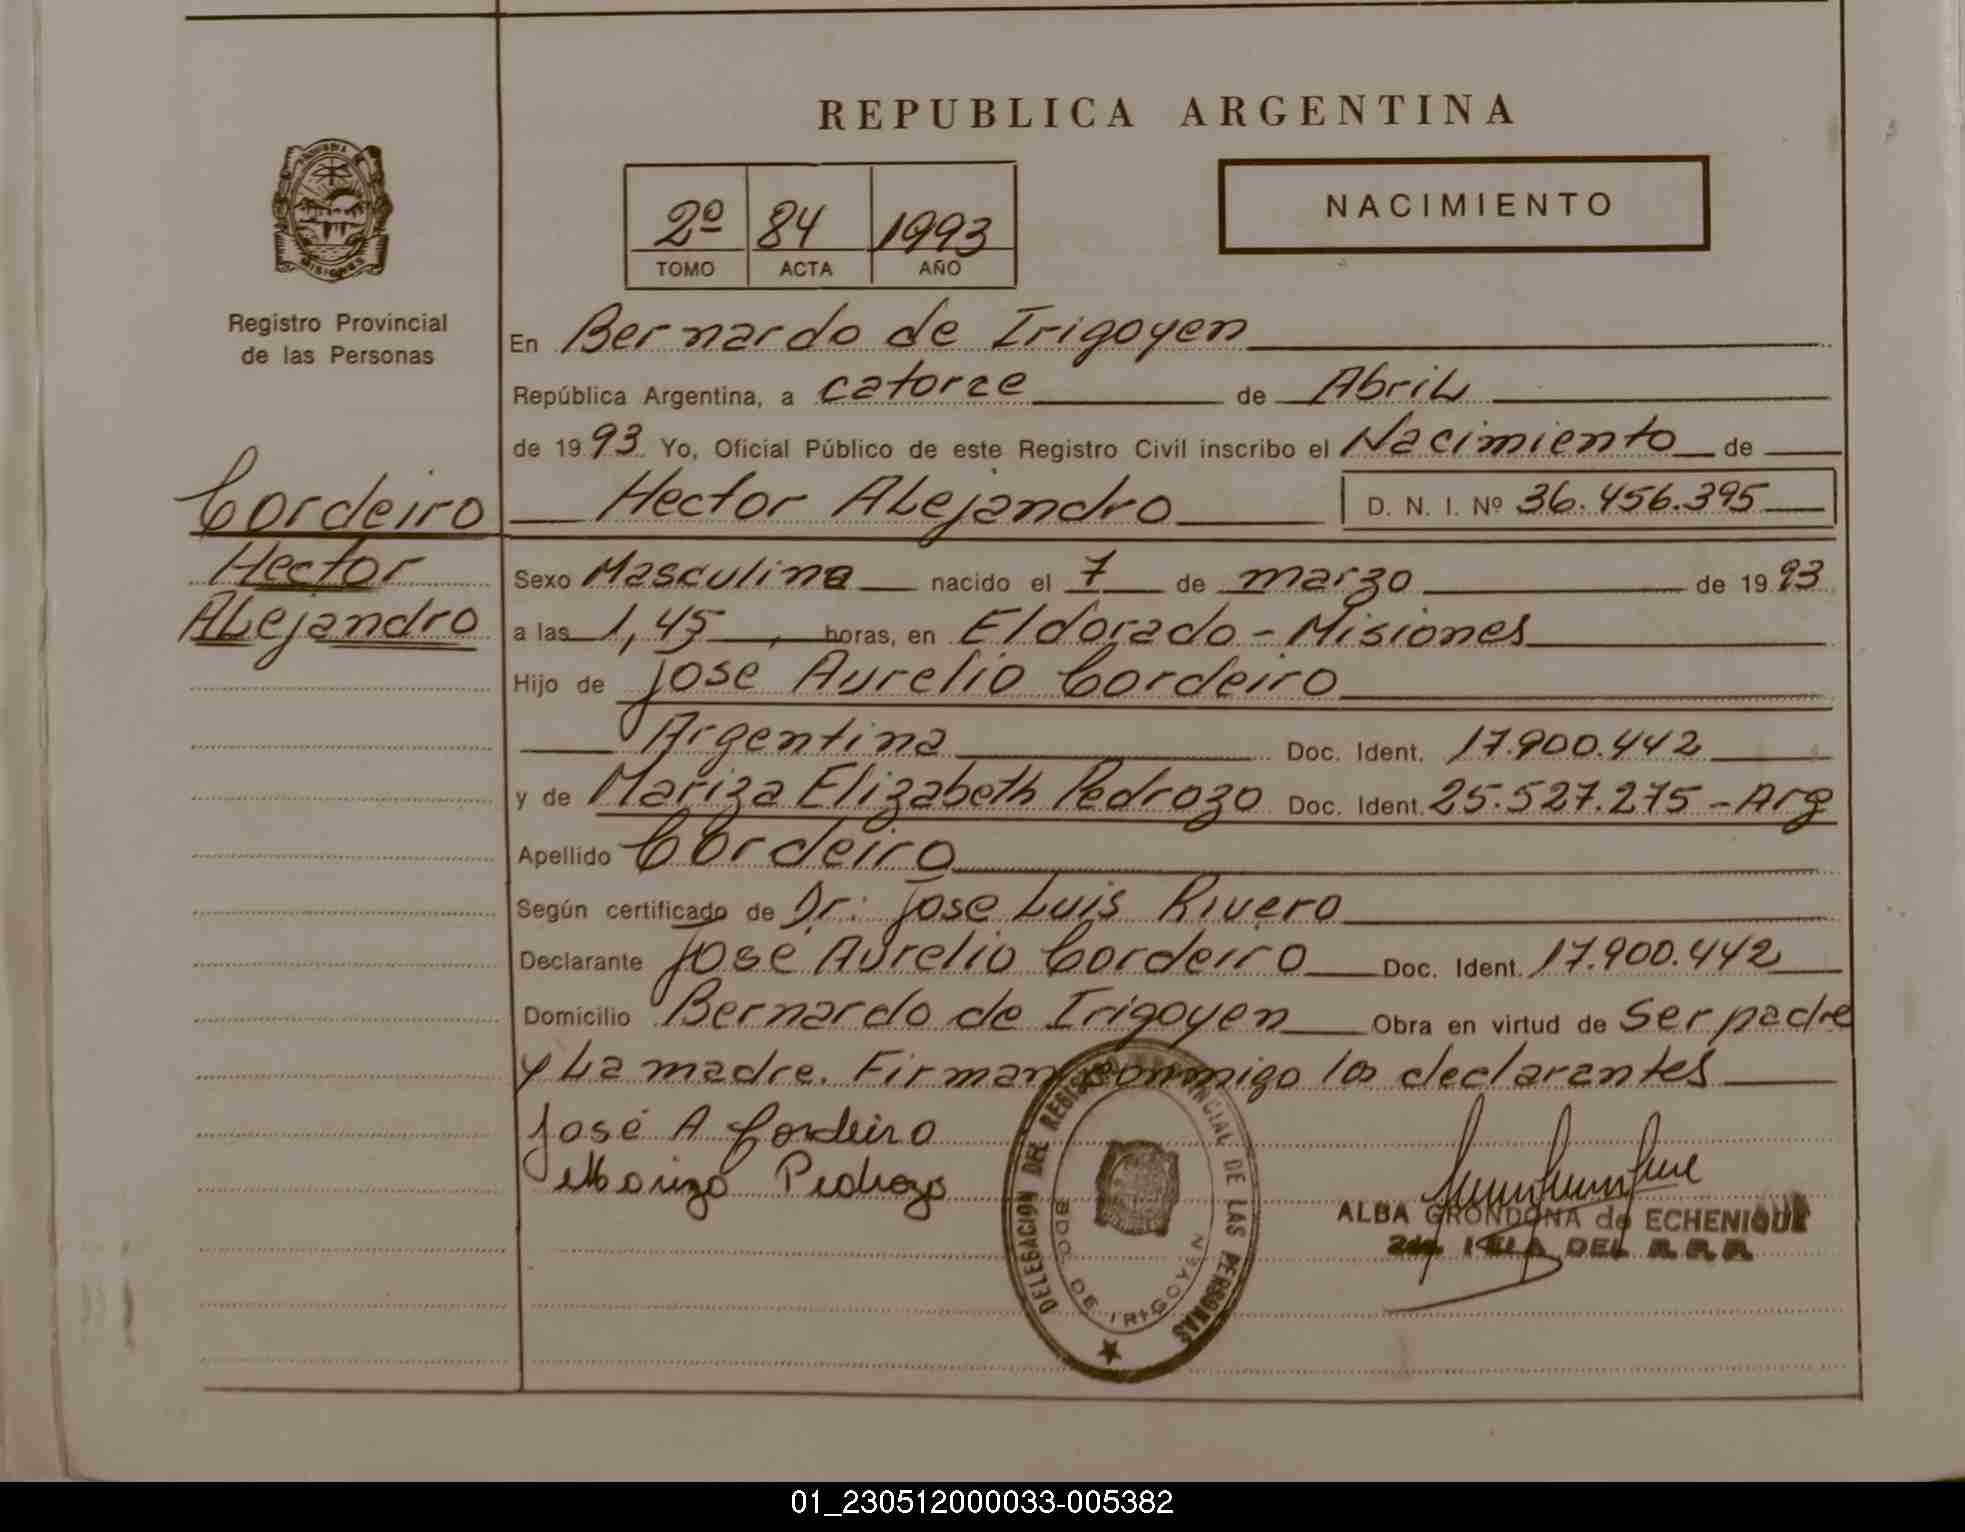 REPUBLICA ARGENTINA
2º 84 1993
TOMO ACTA AÑO
NACIMIENTO
MISIONES
Registro Provincial
de las Personas
Cordeiro
Hector
ALejandro
En Bernardo de Irigoyen
República Argentina, a catorce de Abril
de 1993 Yo, Oficial Público de este Registro Civil inscribo el Nacimiento de
Hector ALejandro D. N. I. Nº 36.456.395
Sexo Masculino nacido el 7 de marzo de 1993
a las 1,45, horas, en Eldorado - Misiones
Hijo de Jose Aurelio Cordeiro
Argentina Doc. Ident. 17.900.442
y de Mariza Elizabeth Pedrozo Doc. Ident. 25.527.275 - Arg
Apellido Cordeiro
Según certificado de Dr: Jose Luis Rivero
Declarante José Aurelio Cordeiro Doc. Ident. 17.900.442
Domicilio Bernardo de Irigoyen Obra en virtud de ser padre
y La madre. Firman conmigo los declarantes
José A Cordeiro
Mariza Pedrozo
DELEGACION DEL REGISTRO PROVINCIAL DE LAS PERSONAS
BDO. DE IRIGOYEN
ALBA GRONDONA de ECHENIQUE
DEL R.P.P.
01_230512000033-005382